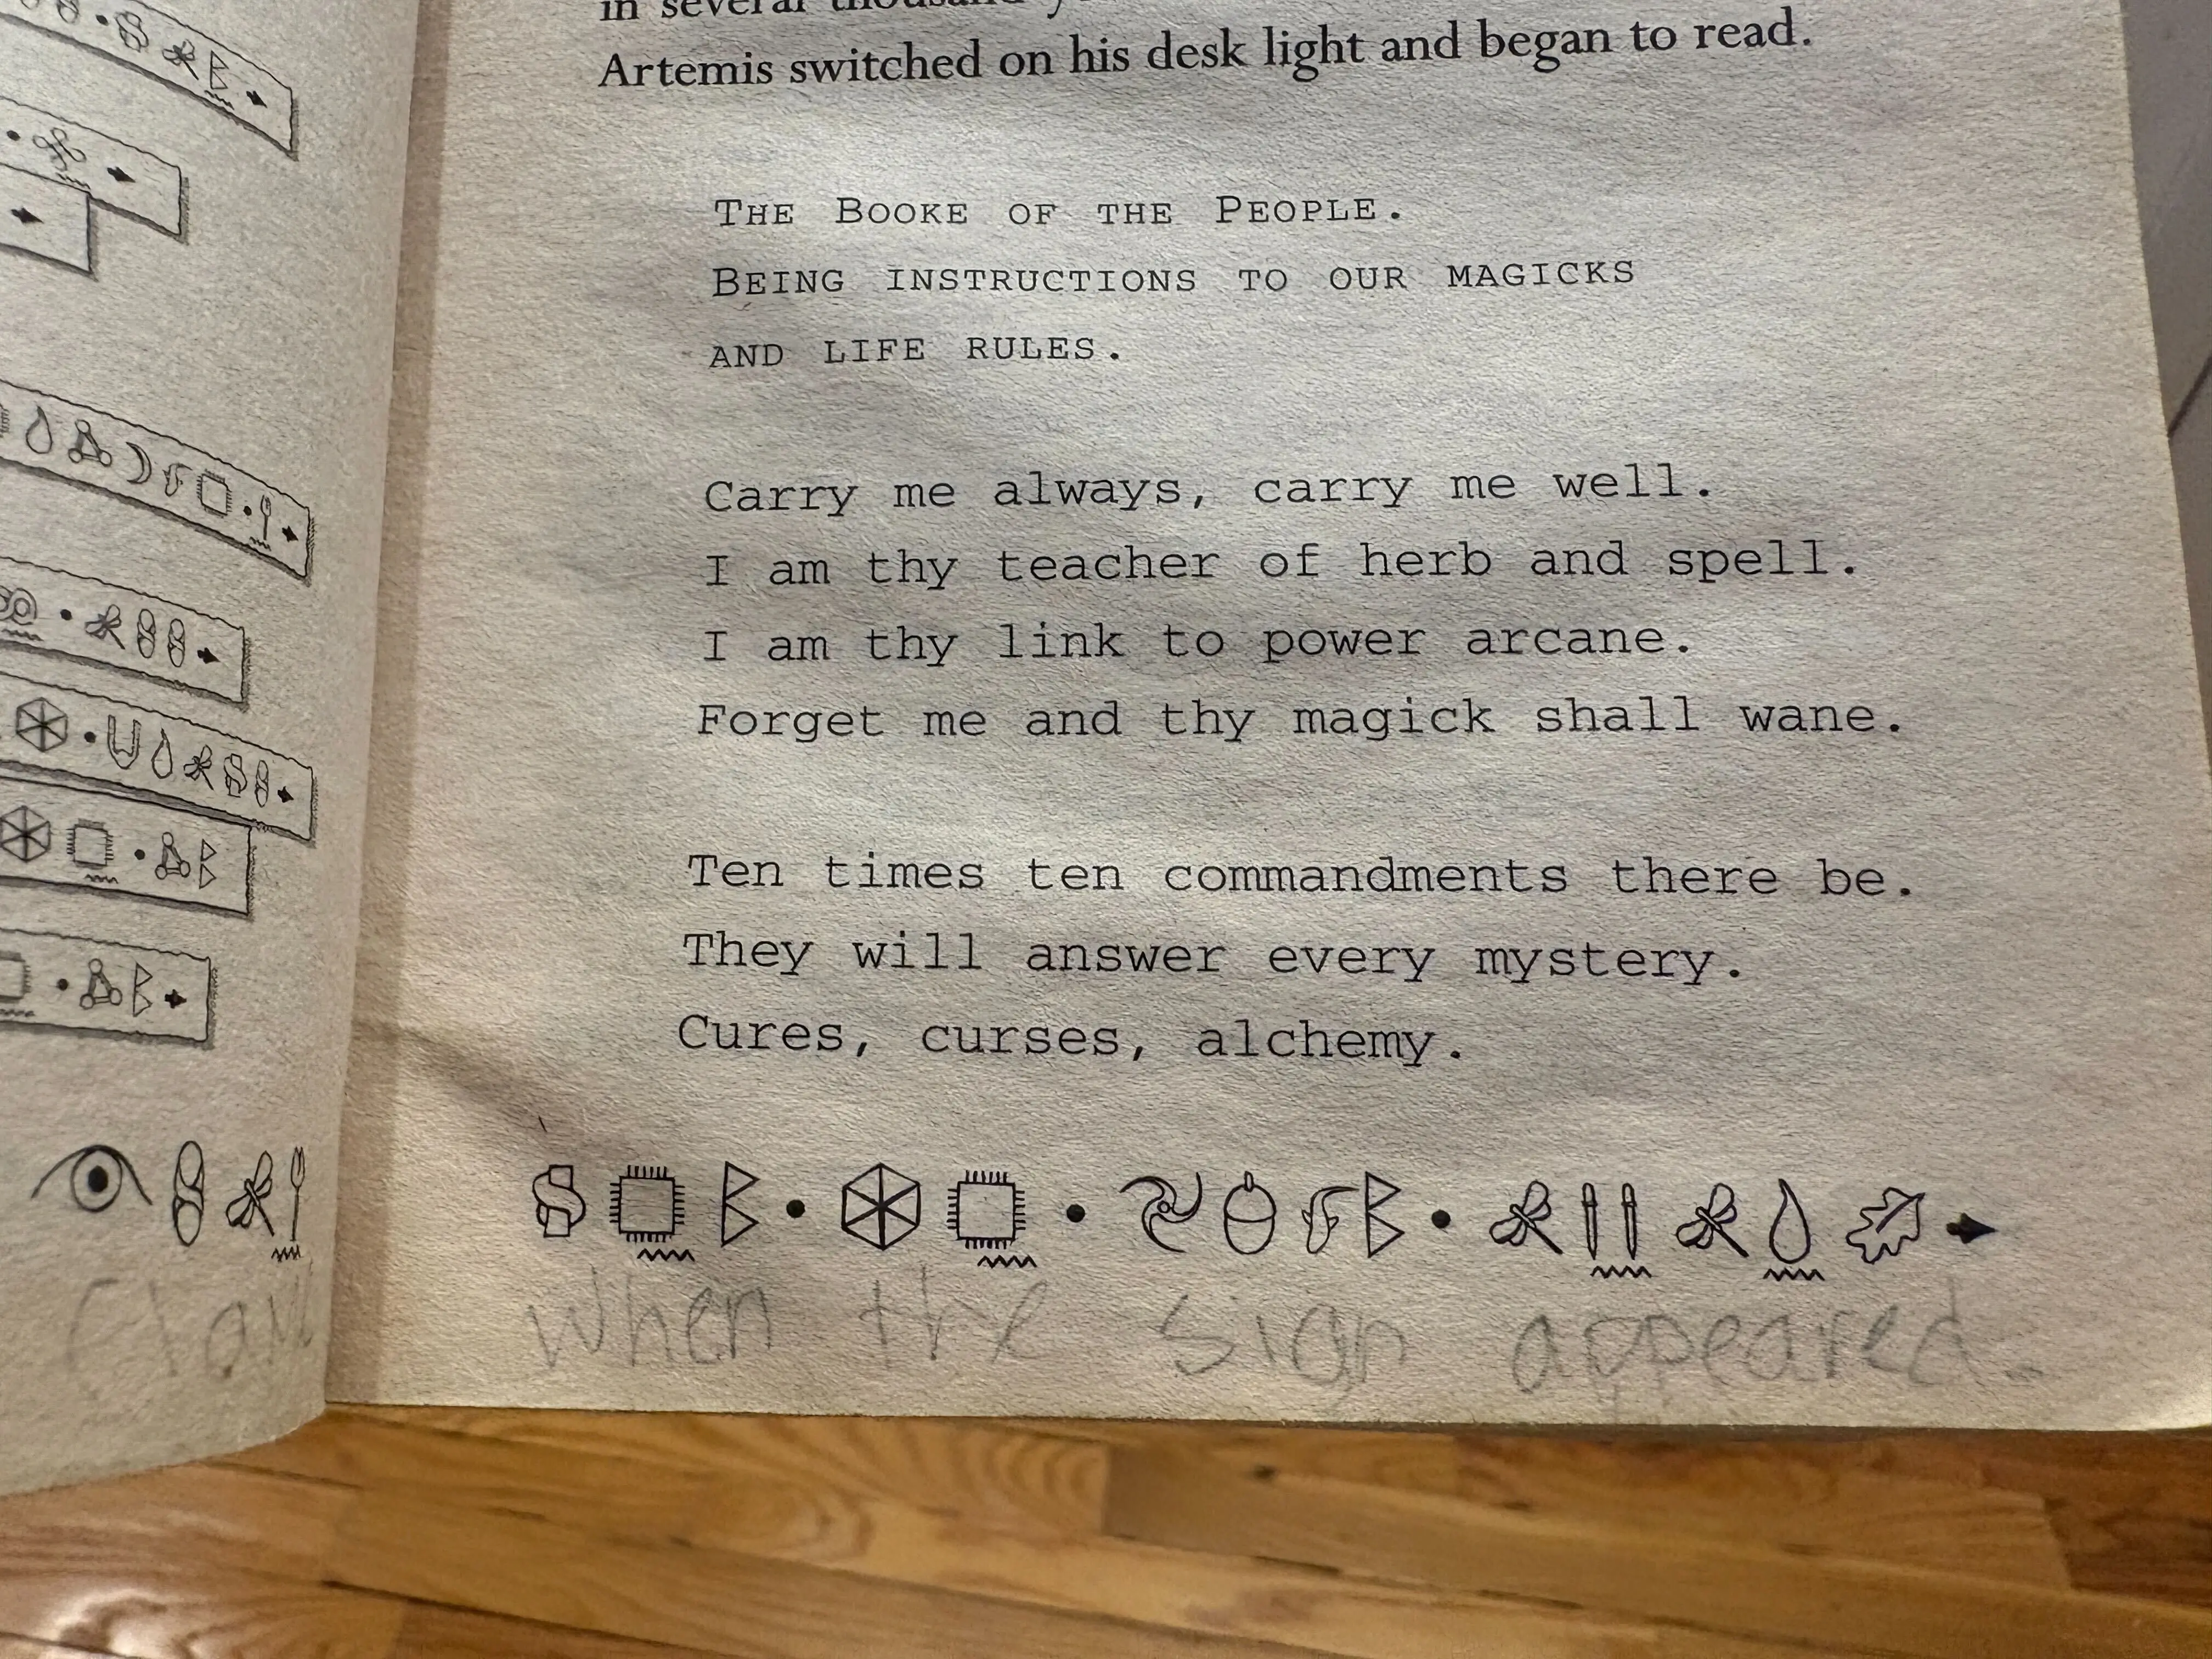 in several thousand
Artemis switched on his desk light and began to read.
THE BOOKE OF THE PEOPLE.
BEING INSTRUCTIONS TO OUR MAGICKS
AND LIFE RULES.
Carry me always, carry me well.
I am thy teacher of herb and spell.
I am thy link to power arcane.
Forget me and thy magick shall wane.
Ten times ten commandments there be.
They will answer every mystery.
Cures, curses, alchemy.
when the sign appeared.